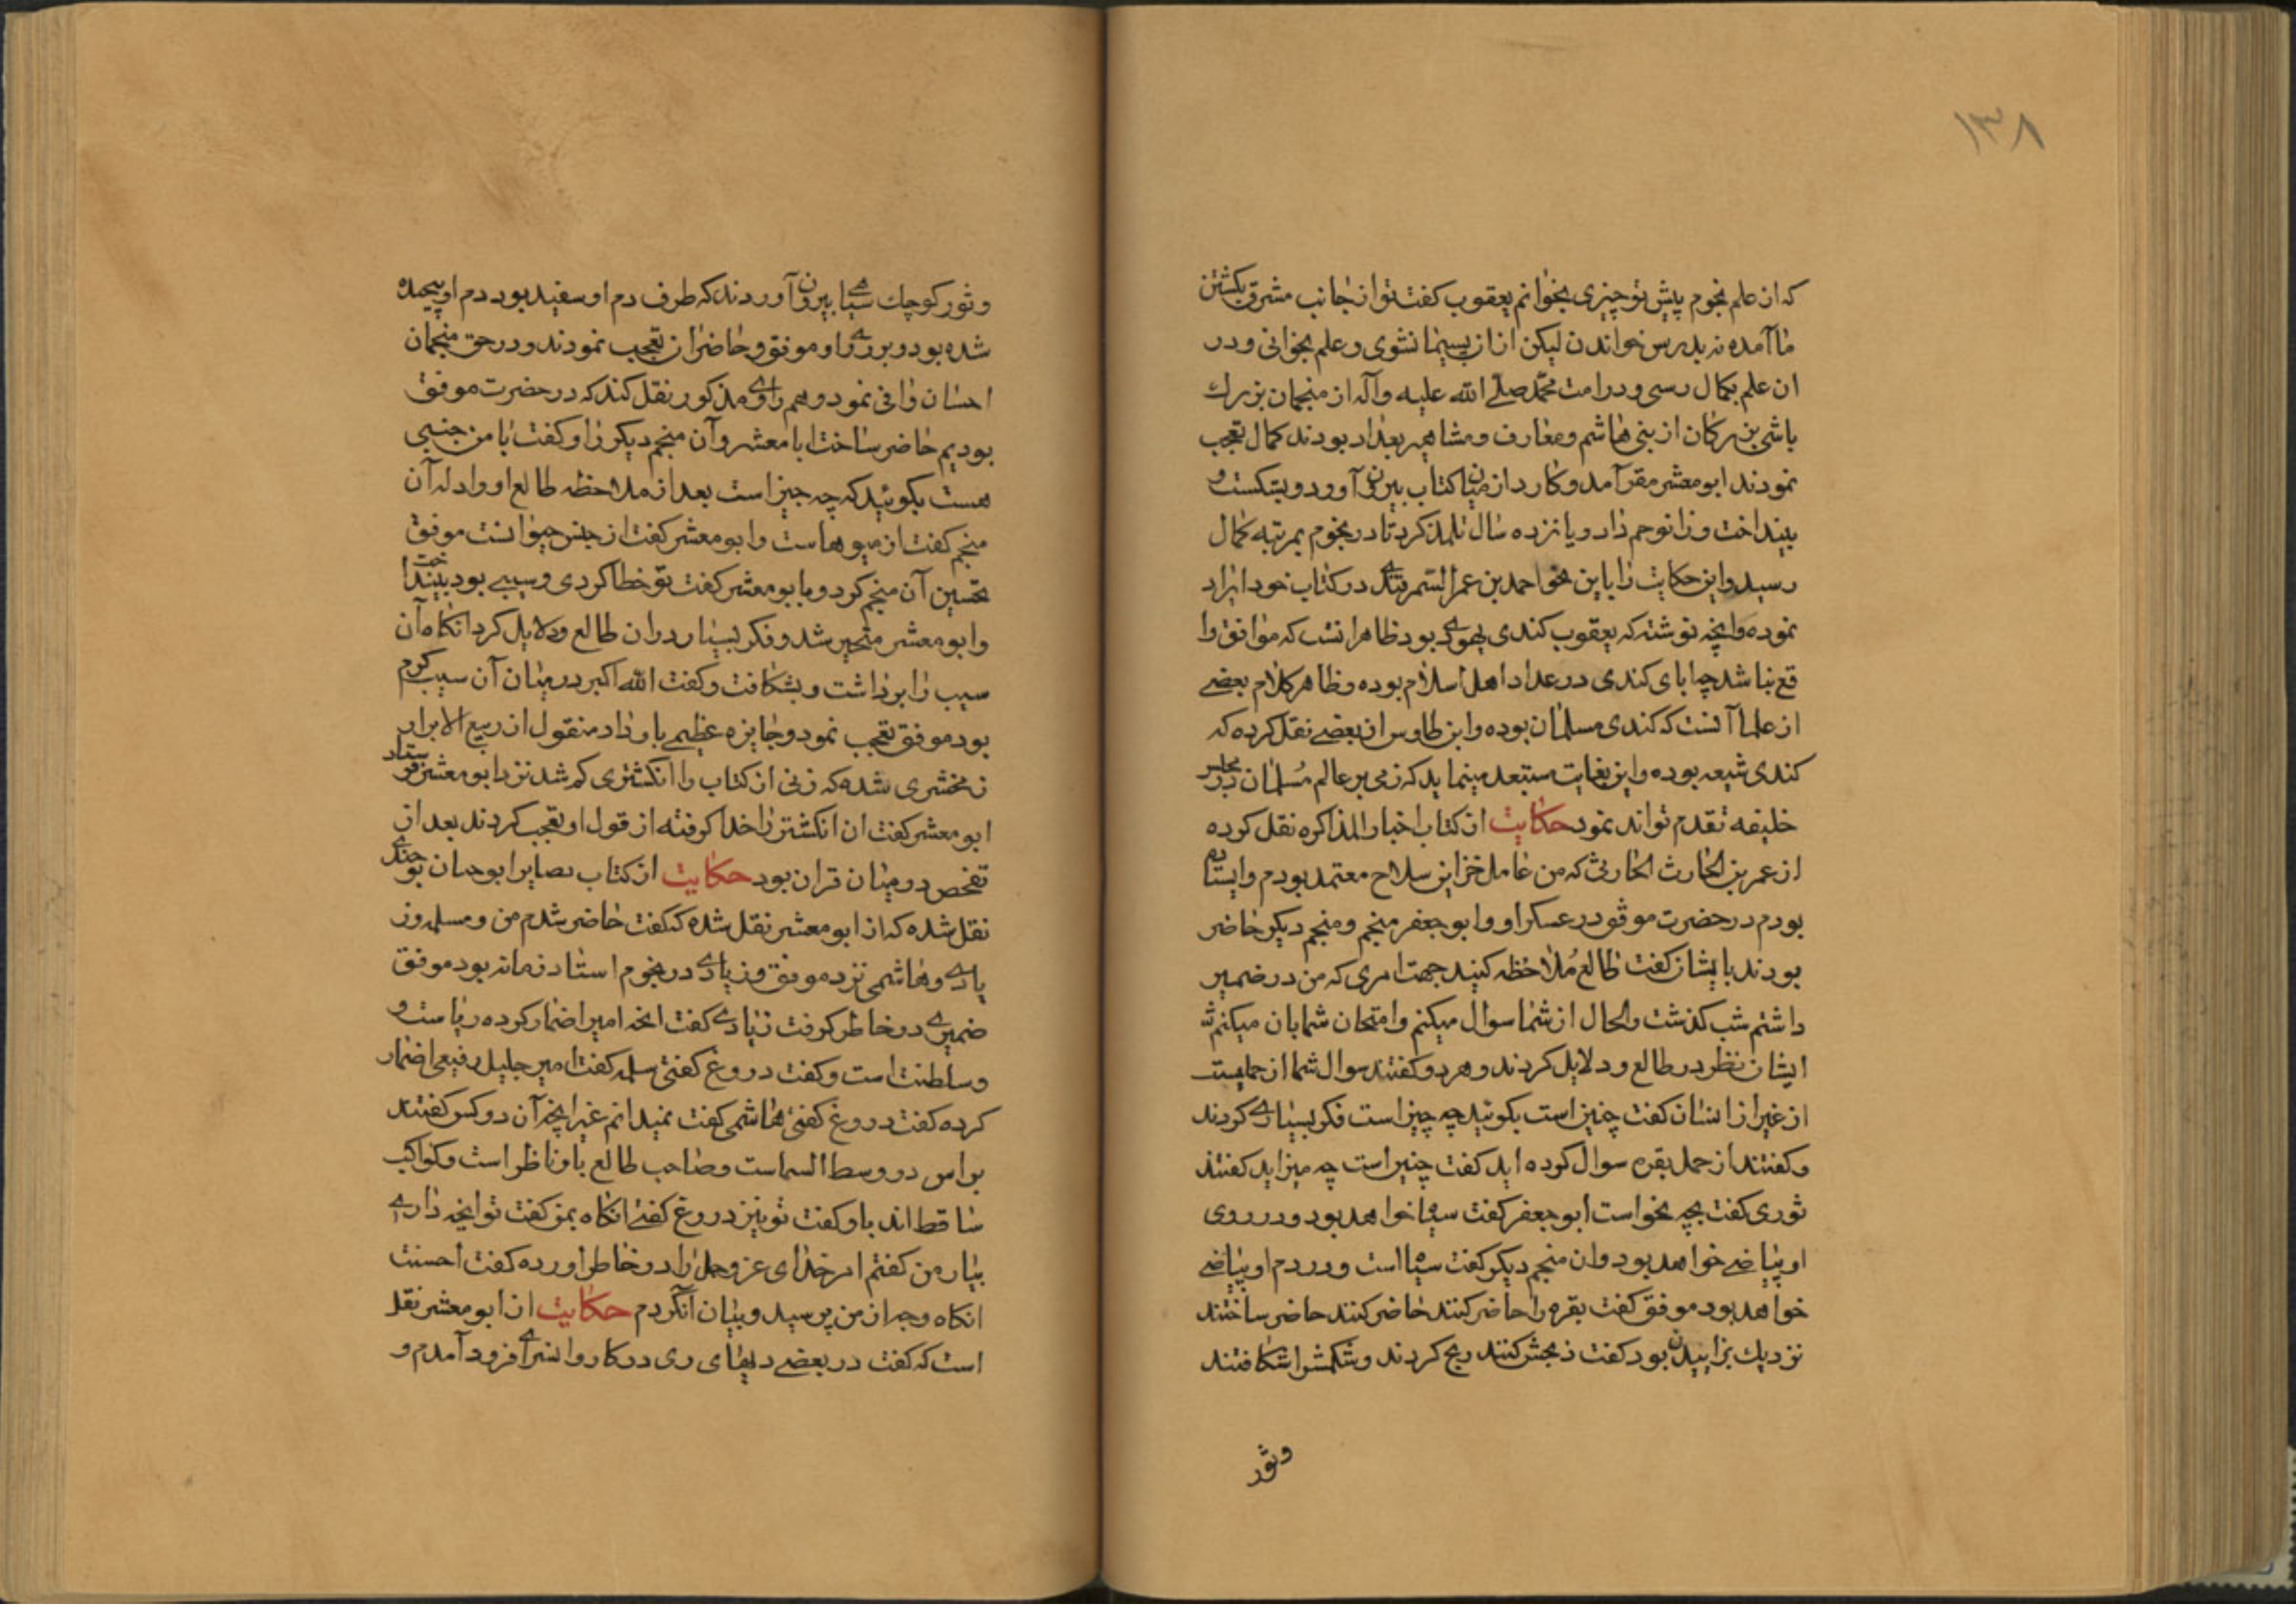 ۱۳۸
که از علم نجوم پیش تو چیزی بخوانم یعقوب کفت تو از جانب مشرق بکشتن
ما آمده نه بدرس خواندن لیکن از ان پسیمان شوی و علم بخوانی و در
ان علم بکمال رسی و در امت محمد صلی الله علیه وآله از منجمان بزرك
باشی بزرکان از بنی هاشم و معارف و مشاهیر بغداد بودند کمال تعجب
نمودند ابو معشر مقر آمد و کارد از میان کتاب بیرون آورد و بشکست و
بینداخت و زانو خم داد و پانزده سال تلمذ کرد تا در نجوم بمرتبه کمال
رسید و این حکایت را باین نحو احمد بن عمر السمرقندی در کتاب خود ایراد
نموده و انچه نوشته که یعقوب کندی یهودی بود ظاهرا نست که موافق وا
قع نباشد چه ابای کندی در عداد اهل اسلام بوده و ظاهر کلام بعضی
از علما آنست که کندی مسلمان بوده و ابن طاوس از بعضی نقل کرده که
کندی شیعه بوده و این بغایت مستبعد مینماید که ذمی بر عالم مسلمان در مجلس
خلیفه تقدم تواند نمود حکایت از کتاب اخبار المذاکره نقل کرده
از عمر بن الحارث الحارثی که من عامل خزاین سلاح معتمد بودم و ایستاده
بودم در حضرت موفق در عسکر او و ابو جعفر منجم و منجم دیکر حاضر
بودند بایشان کفت طالع ملاحظه کنید جهت امری که من در ضمیر
داشتم شب کذشت والحال از شما سوال میکنم و امتحان شما بان میکنم
ایشان نظر در طالع و دلایل کردند و هر دو کفتند سوال شما از حملیست
از غیر از انسان کفت چنین است بکوئید چه چیز است فکر بسیاری کردند
و کفتند از حمل بقره سوال کرده اید کفت چنین است چه میزاید کفتند
ثوری کفت بچه نحو است ابو جعفر کفت سیاه خواهد بود و در روی
او بیاضی خواهد بود وان منجم دیکر کفت سیاه است و در دم او بیاضی
خواهد بود موفق کفت بقره را حاضر کنند حاضر کنند حاضر ساختند
نزدیك بزاییدن بود کفت ذبحش کنند ذبح کردند و شکمش را شکافتند
وثور
وثور کوچك سیاهی بیرون آوردند که طرف دم او سفید بود دم او پیچیده
شده بود و بر روی او موفق و حاضران تعجب نمودند و در حق منجمان
احسان وافی نمود و هم راوی مذکور نقل کند که در حضرت موفق
بودیم حاضر ساخت ابا معشر و آن منجم دیکر را و کفت با من جنبی
هست بکوئید که چه چیز است بعد از ملاحظه طالع او واد له آن
منجم کفت از میوها است و ابو معشر کفت از جنس حیوانست موفق
تحسین آن منجم کرد و با بو معشر کفت تو خطا کردی و سیبی بود بینداخت
و ابو معشر متحیر شد و فکر بسیار دران طالع و دلایل کرد انکاه آن
سیب را برداشت و بشکافت و کفت الله اکبر در میان آن سیب کرم
بود موفق تعجب نمود و جایزه عظیمی باو داد منقول از ربیع الابرار
زمخشری شده که زنی از کتاب را انکشتری کم شد نزد ابو معشر فرستاد
ابو معشر کفت ان انکشتر را خدا کرفته از قول او تعجب کردند بعد از
تفحص در میان قران بود حکایت از کتاب بصایر ابو حیان توحیدی
نقل شده که از ابو معشر نقل شده که کفت حاضر شدم من و مسلمه و ز
یادی و هاشمی نزد موفق و زیادی در نجوم استاد زمانه بود موفق
ضمیری در خاطر کرفت زیادی کفت انچه امیر اضمار کرده ریاست و
و سلطنت است و کفت دروغ کفتی سلمه کفت امیر جلیل رفیعی اضمار
کرده کفت دروغ کفتی هاشمی کفت نمیدانم غیر انچه آن دو کس کفتند
براس در وسط السماست و صاحب طالع باو ناظر است و کواکب
ساقط اند باو کفت تو نیز دروغ کفتی انکاه بمن کفت تو انچه داری
بیار من کفتم امر خدای عز و جل را در خاطر اورده کفت احسنت
انکاه وجه از من پرسید و بیان آن کردم حکایت از ابو معشر نقل
است که کفت در بعضی دیهای ری در کاروانسرائی فرود آمدم و